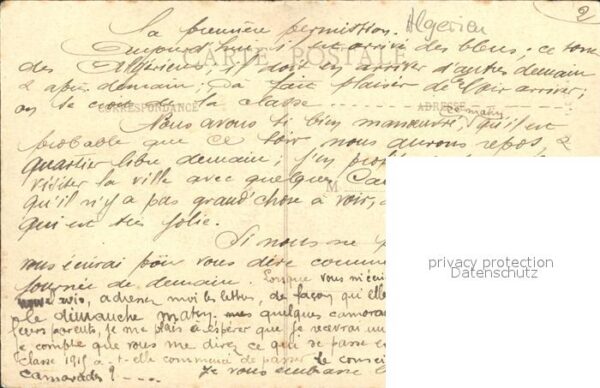 la première permission. Algérien 2
Aujourd'hui il est arrivé des bleus; ce sont
CARTE POSTALE
des Algériens, il doit en arriver d'autres demain
& après demain; ça fait plaisir de voir arriver;
on se croit de la classe
CORRESPONDANCE ADRESSE
Nous avons si bien manœuvré, qu'il est
probable que ce soir nous aurons repos, &
quartier libre demain; j'en
visiter la ville avec quelques
M
qu'il n'y a pas grand'chose à voir,
qui est très jolie.
Si nous ne
vous écrirai pour vous dire comme
journée de demain. Lorsque vous
avis, adressez moi les lettres, de façon qu'elle
le dimanche matin. mes quelques camara
leurs parents, je me plais à espérer que je recevrai un
Je compte que vous me direz ce qui se passe
classe 1915 a-t-elle commencé de passer le conseil
camarades ?
Je vous embrasse
privacy protection
Datenschutz